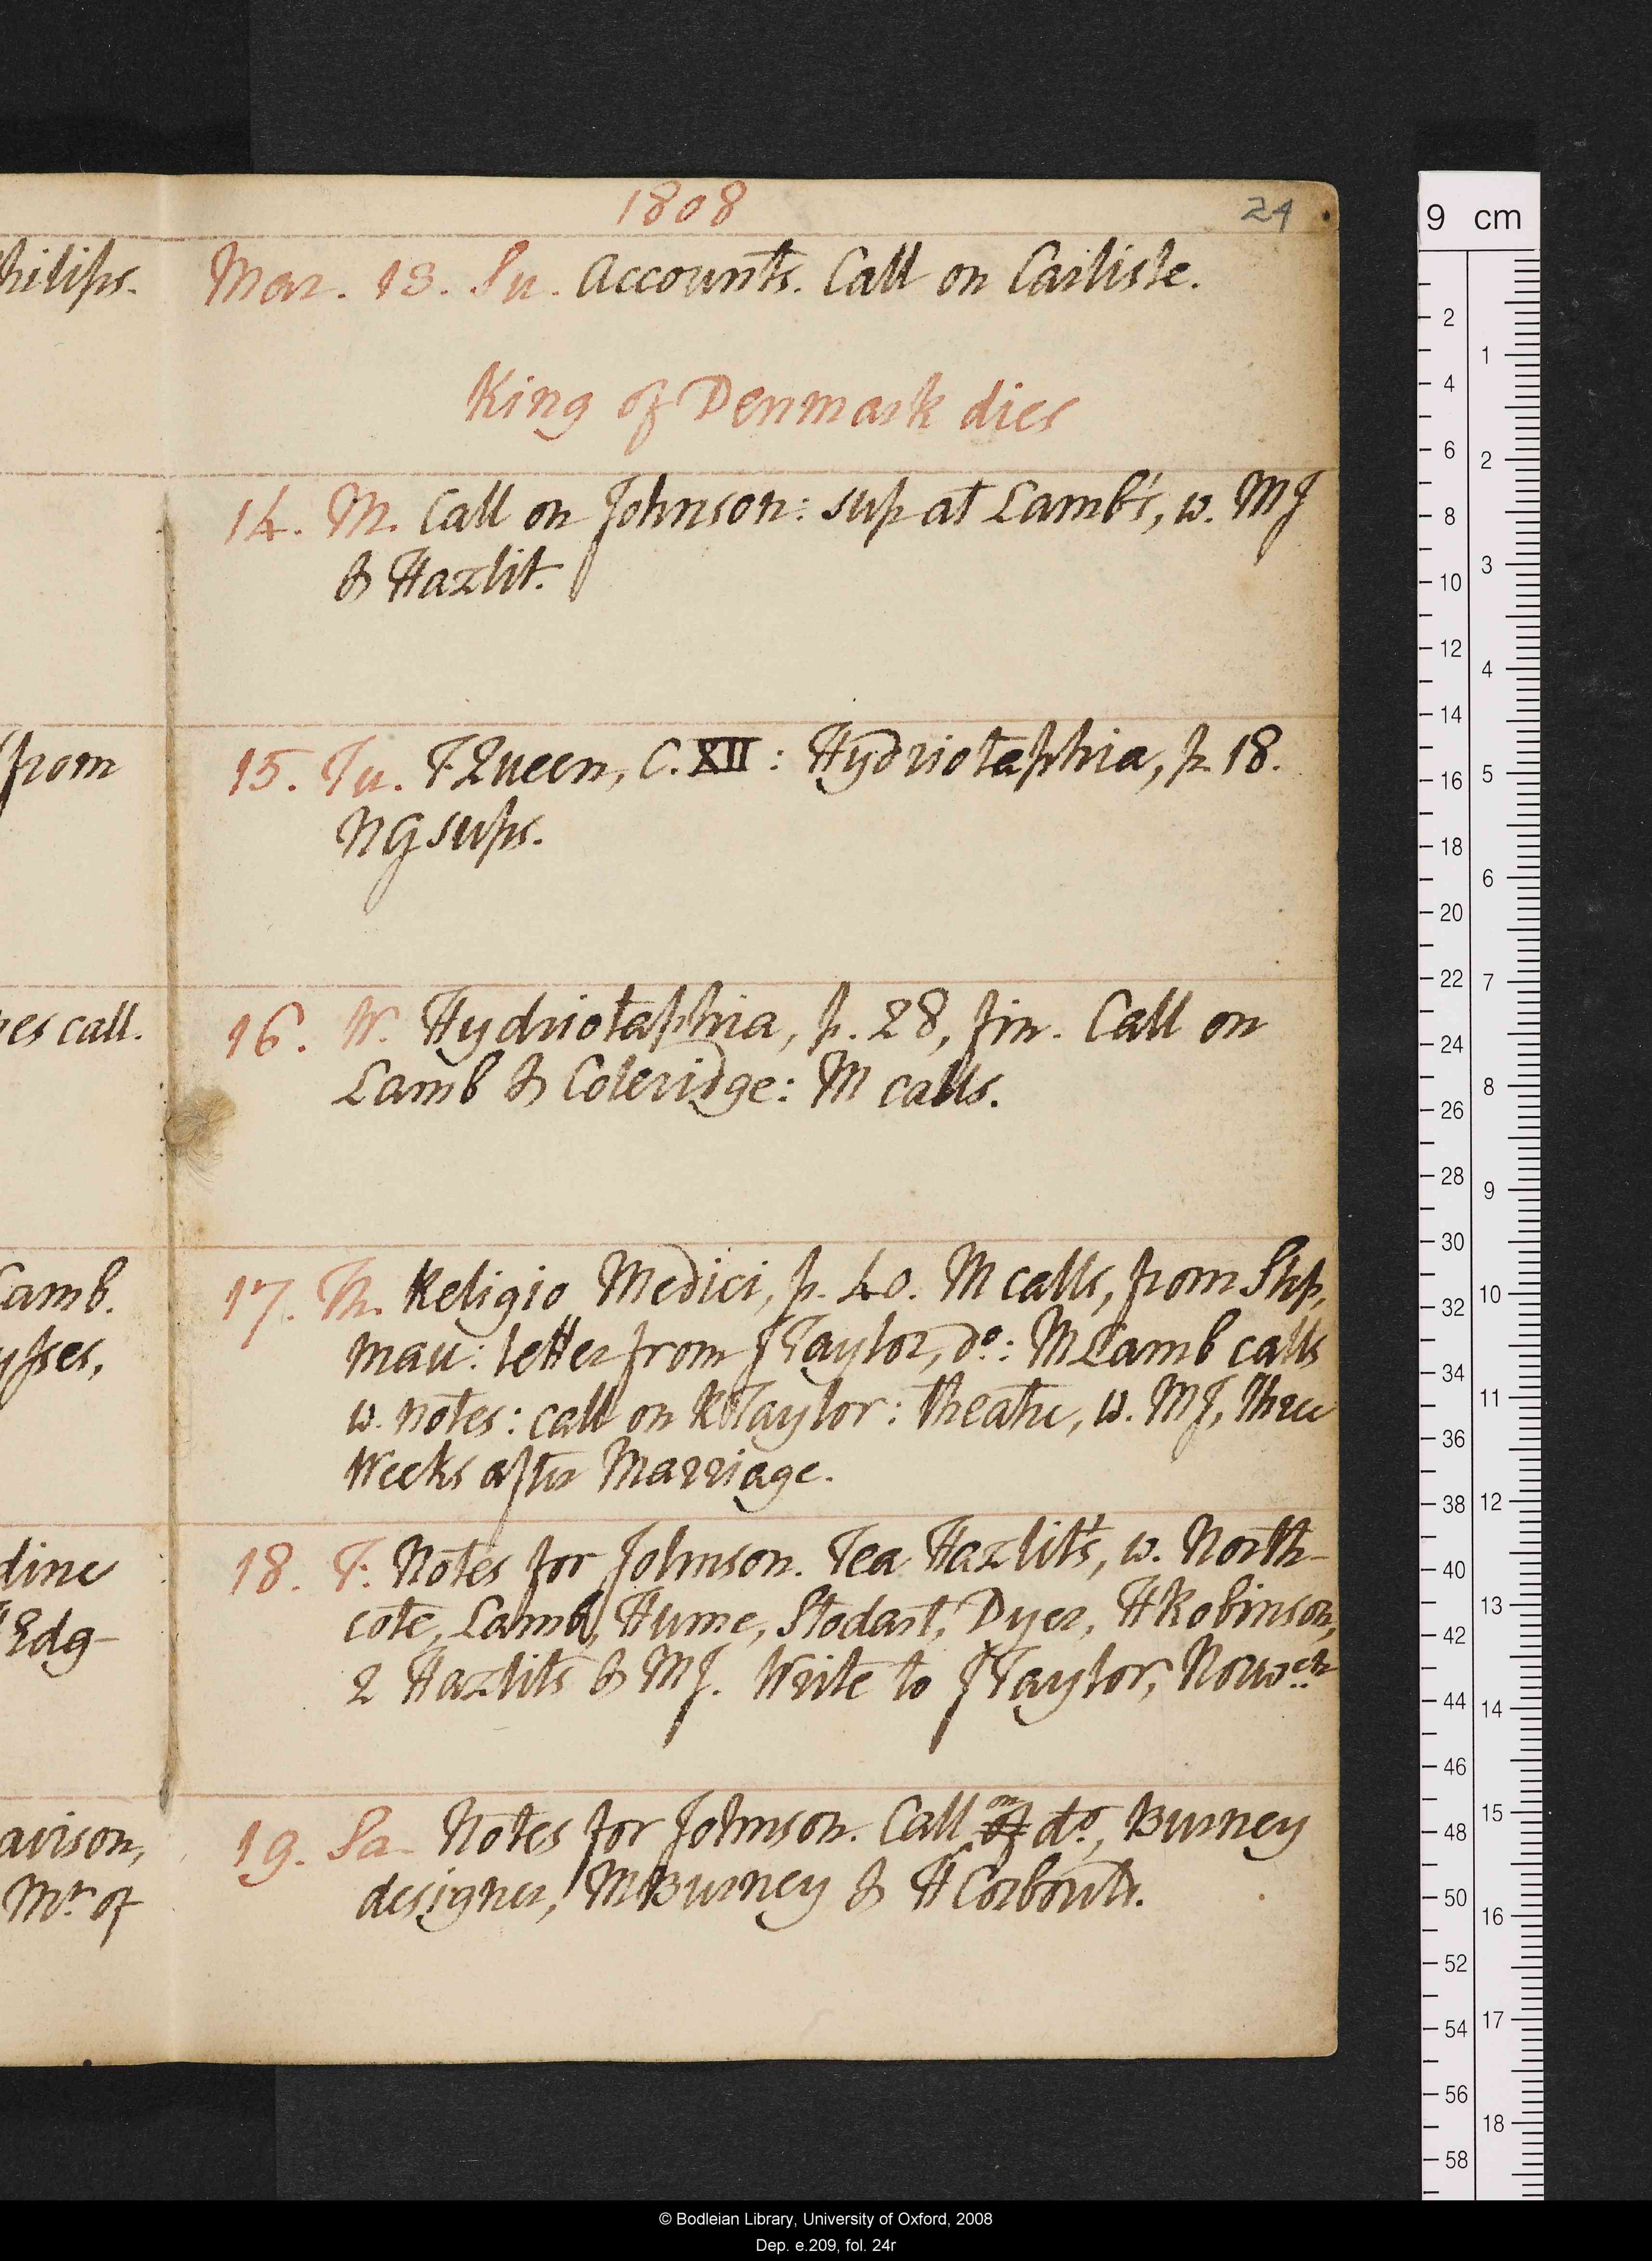 1808
24
hilips.
Mar. 13. Su. Accounts. Call on Carlisle.
King of Denmark dies
14. M. Call on Johnson: sup at Lamb's, w. MJ
& Hazlit.
from
15. Tu. F Queen, C. XII: Hydriotaphia, p. 18.
NG sups.
es call.
16. W. Hydriotaphia, p. 28, fin. Call on
Lamb & Coleridge: M calls.
Lamb.
ysses,
17. Th. Religio Medici, p. 40. M calls, from Shp,
mau: letter from J Taylor, do: M Lamb calls
w. notes: call on R Taylor: theatre, w. MJ, Three
Weeks after Marriage.
dine
Edg-
18. F. Notes for Johnson. Tea Hazlit's, w. North-
cote, Lamb, Hume, Stodart, Dyer, H Robinson,
2 Hazlits & MJ. Write to J Taylor, Norwch
avison,
Mr of
19. Sa. Notes for Johnson. Call of on do, Burney
designer, M Burney & H Corbould.
9 cm
2 4 6 8 10 12 14 16 18 20 22 24 26 28 30 32 34 36 38 40 42 44 46 48 50 52 54 56 58
1 2 3 4 5 6 7 8 9 10 11 12 13 14 15 16 17 18
© Bodleian Library, University of Oxford, 2008
Dep. e.209, fol. 24r